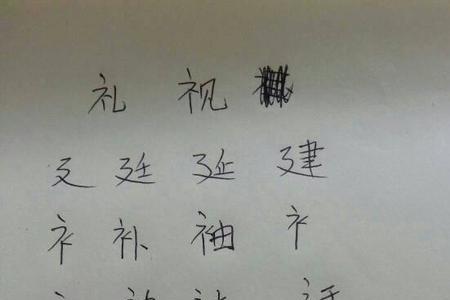 礼 视
廴 廷 延 建
衤 补 袖 衤